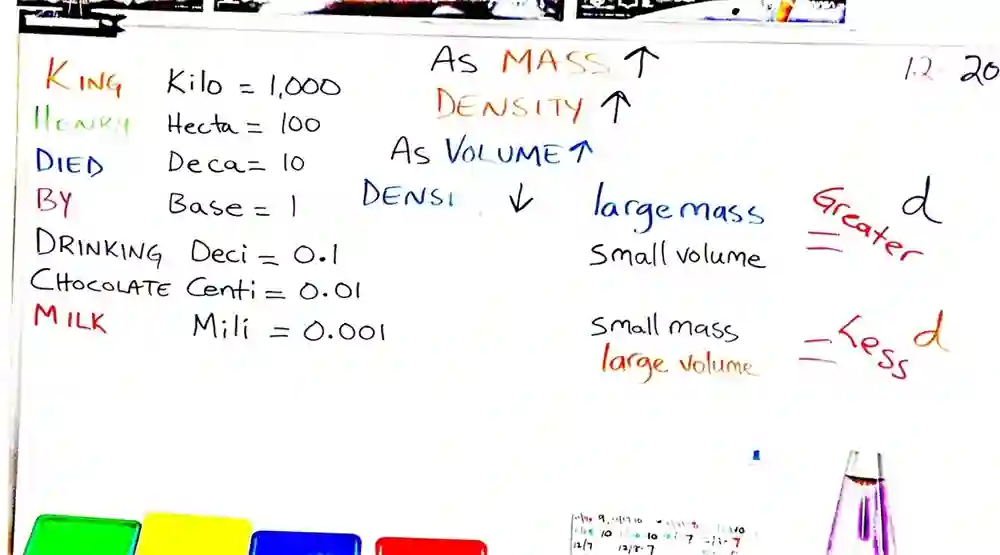 KING Kilo = 1,000
HENRY Hecta = 100
DIED Deca = 10
BY Base = 1
DRINKING Deci = 0.1
CHOCOLATE Centi = 0.01
MILK Mili = 0.001
AS MASS ↑
DENSITY ↑
AS VOLUME ↑
DENSI ↓
12 20
large mass
small volume
= Greater d
small mass
large volume
= Less d
12/7 12/8-7